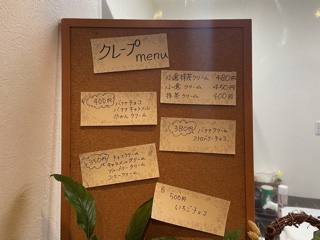 クレープmenu
小倉抹茶クリーム 480円
小倉クリーム 450円
抹茶クリーム 400円
400円
バナナチョコ
バナナキャラメル
みかんクリーム
380円
バナナクリーム
350円
チョコクリーム
キャラメルクリーム
ブルーベリークリーム
コーヒークリーム
500円
いちごチョコ